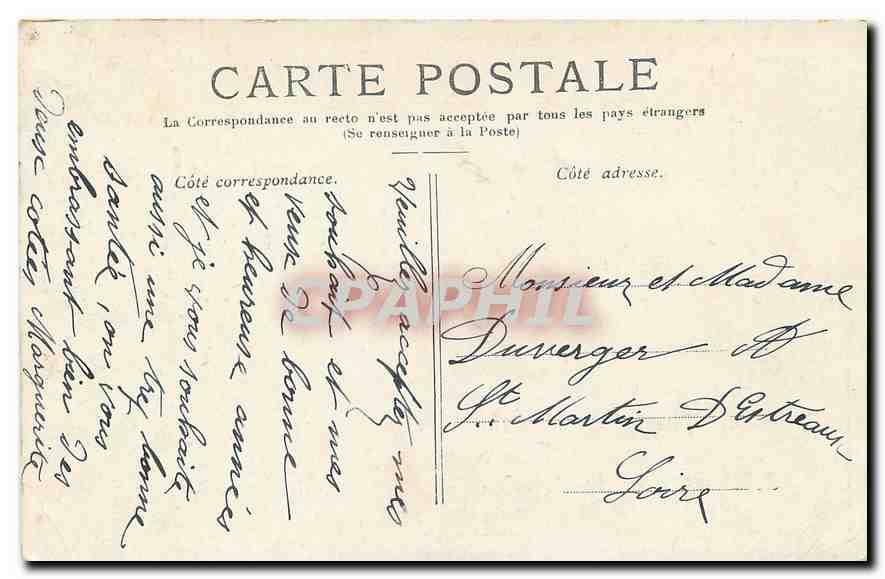 CARTE POSTALE
La Correspondance au recto n'est pas acceptée par tous les pays étrangers
(Se renseigner à la Poste)
Côté correspondance.
Côté adresse.
Veuillez accepter mes
souhait et mes
veux de bonne
et heureuse années
et je vous souhaite
aussi une tres bonne
santée, on vous
embrassant bien des
deux cotées Marguerite
Monsieur et Madame
Duverger A
St Martin D'Estreaux
Loire
CPAPHIL